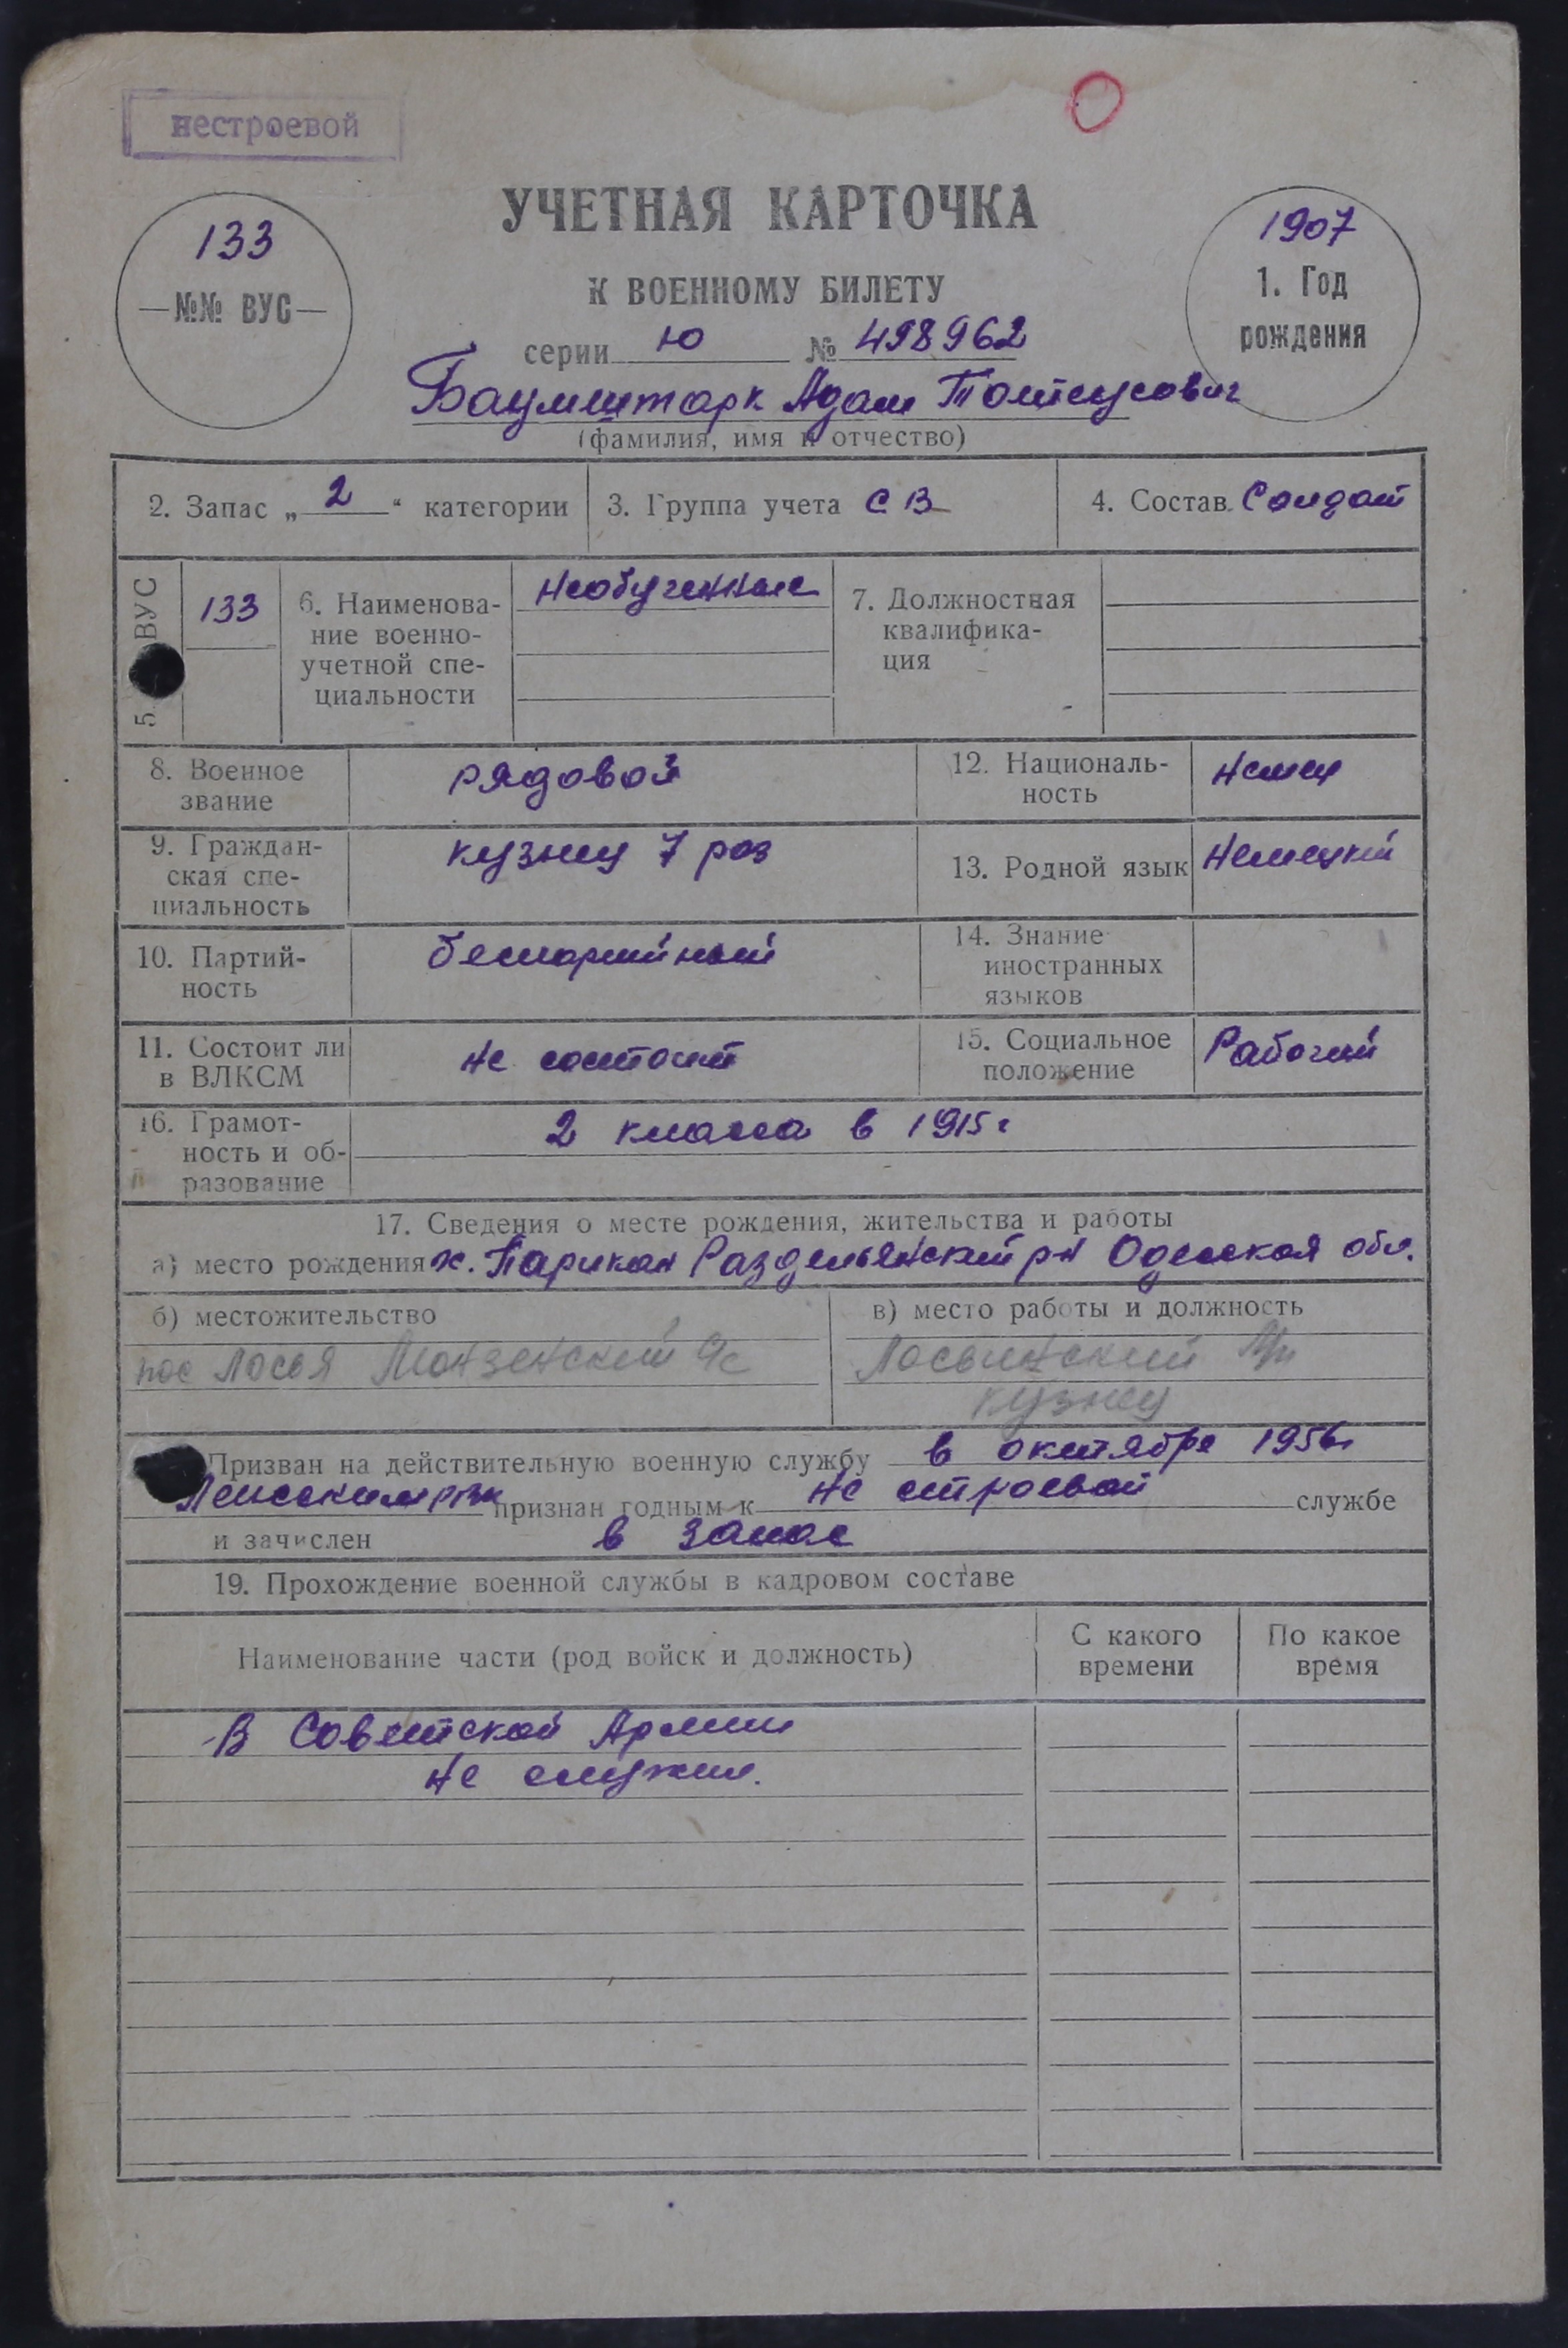 нестроевой
УЧЕТНАЯ КАРТОЧКА
К ВОЕННОМУ БИЛЕТУ
133
№№ ВУС
1907
1. Год
рождения
серии Ю № 498962
Баумштарк Адам
(фамилия, имя и отчество)
2. Запас „ 2 “ категории
3. Группа учета СВ
4. Состав Солдат
5. ВУС
133
6. Наименова-
ние военно-
учетной спе-
циальности
Необученные
7. Должностная
квалифика-
ция
8. Военное
звание
рядовой
12. Националь-
ность
Немец
9. Граждан-
ская спе-
циальность
кузнец 7 раз
13. Родной язык Немецкий
10. Партий-
ность
беспартийный
14. Знание
иностранных
языков
11. Состоит ли
в ВЛКСМ
не состоит
15. Социальное
положение
Рабочий
16. Грамот-
ность и об-
разование
2 класса в 1915 г
17. Сведения о месте рождения, жительства и работы
а) место рождения х. Парикан Раздельянский р-н Одесская обл.
б) местожительство
пос Лосья Монзенский с/с
в) место работы и должность
Лосьинский
кузнец
Призван на действительную военную службу в октябре 1956г
признан годным к не строевой службе
и зачислен в запас
19. Прохождение военной службы в кадровом составе
Наименование части (род войск и должность)
С какого
времени
По какое
время
В Советской Армии
не служил.